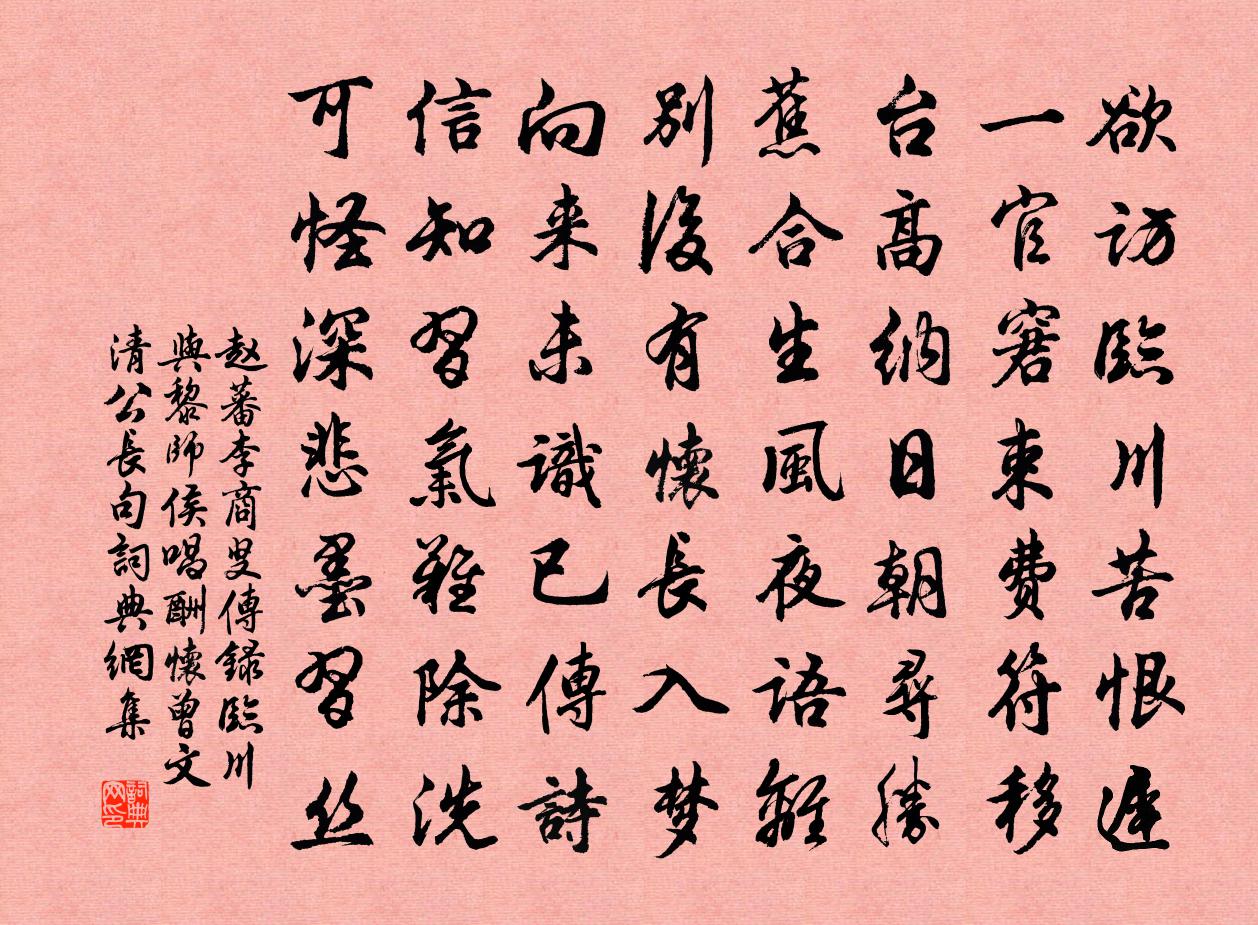 欲访臨川苦恨遲
一官窘束費符移
台高納日朝尋勝
蕉合生風夜语離
別後有懷長入梦
向来未識已傳詩
信知習氣難除洗
可怪深悲墨習丝
赵蕃李商叟傳録臨川
與黎師侯唱酬懷曾文
清公長句詞典網集
詞典网印